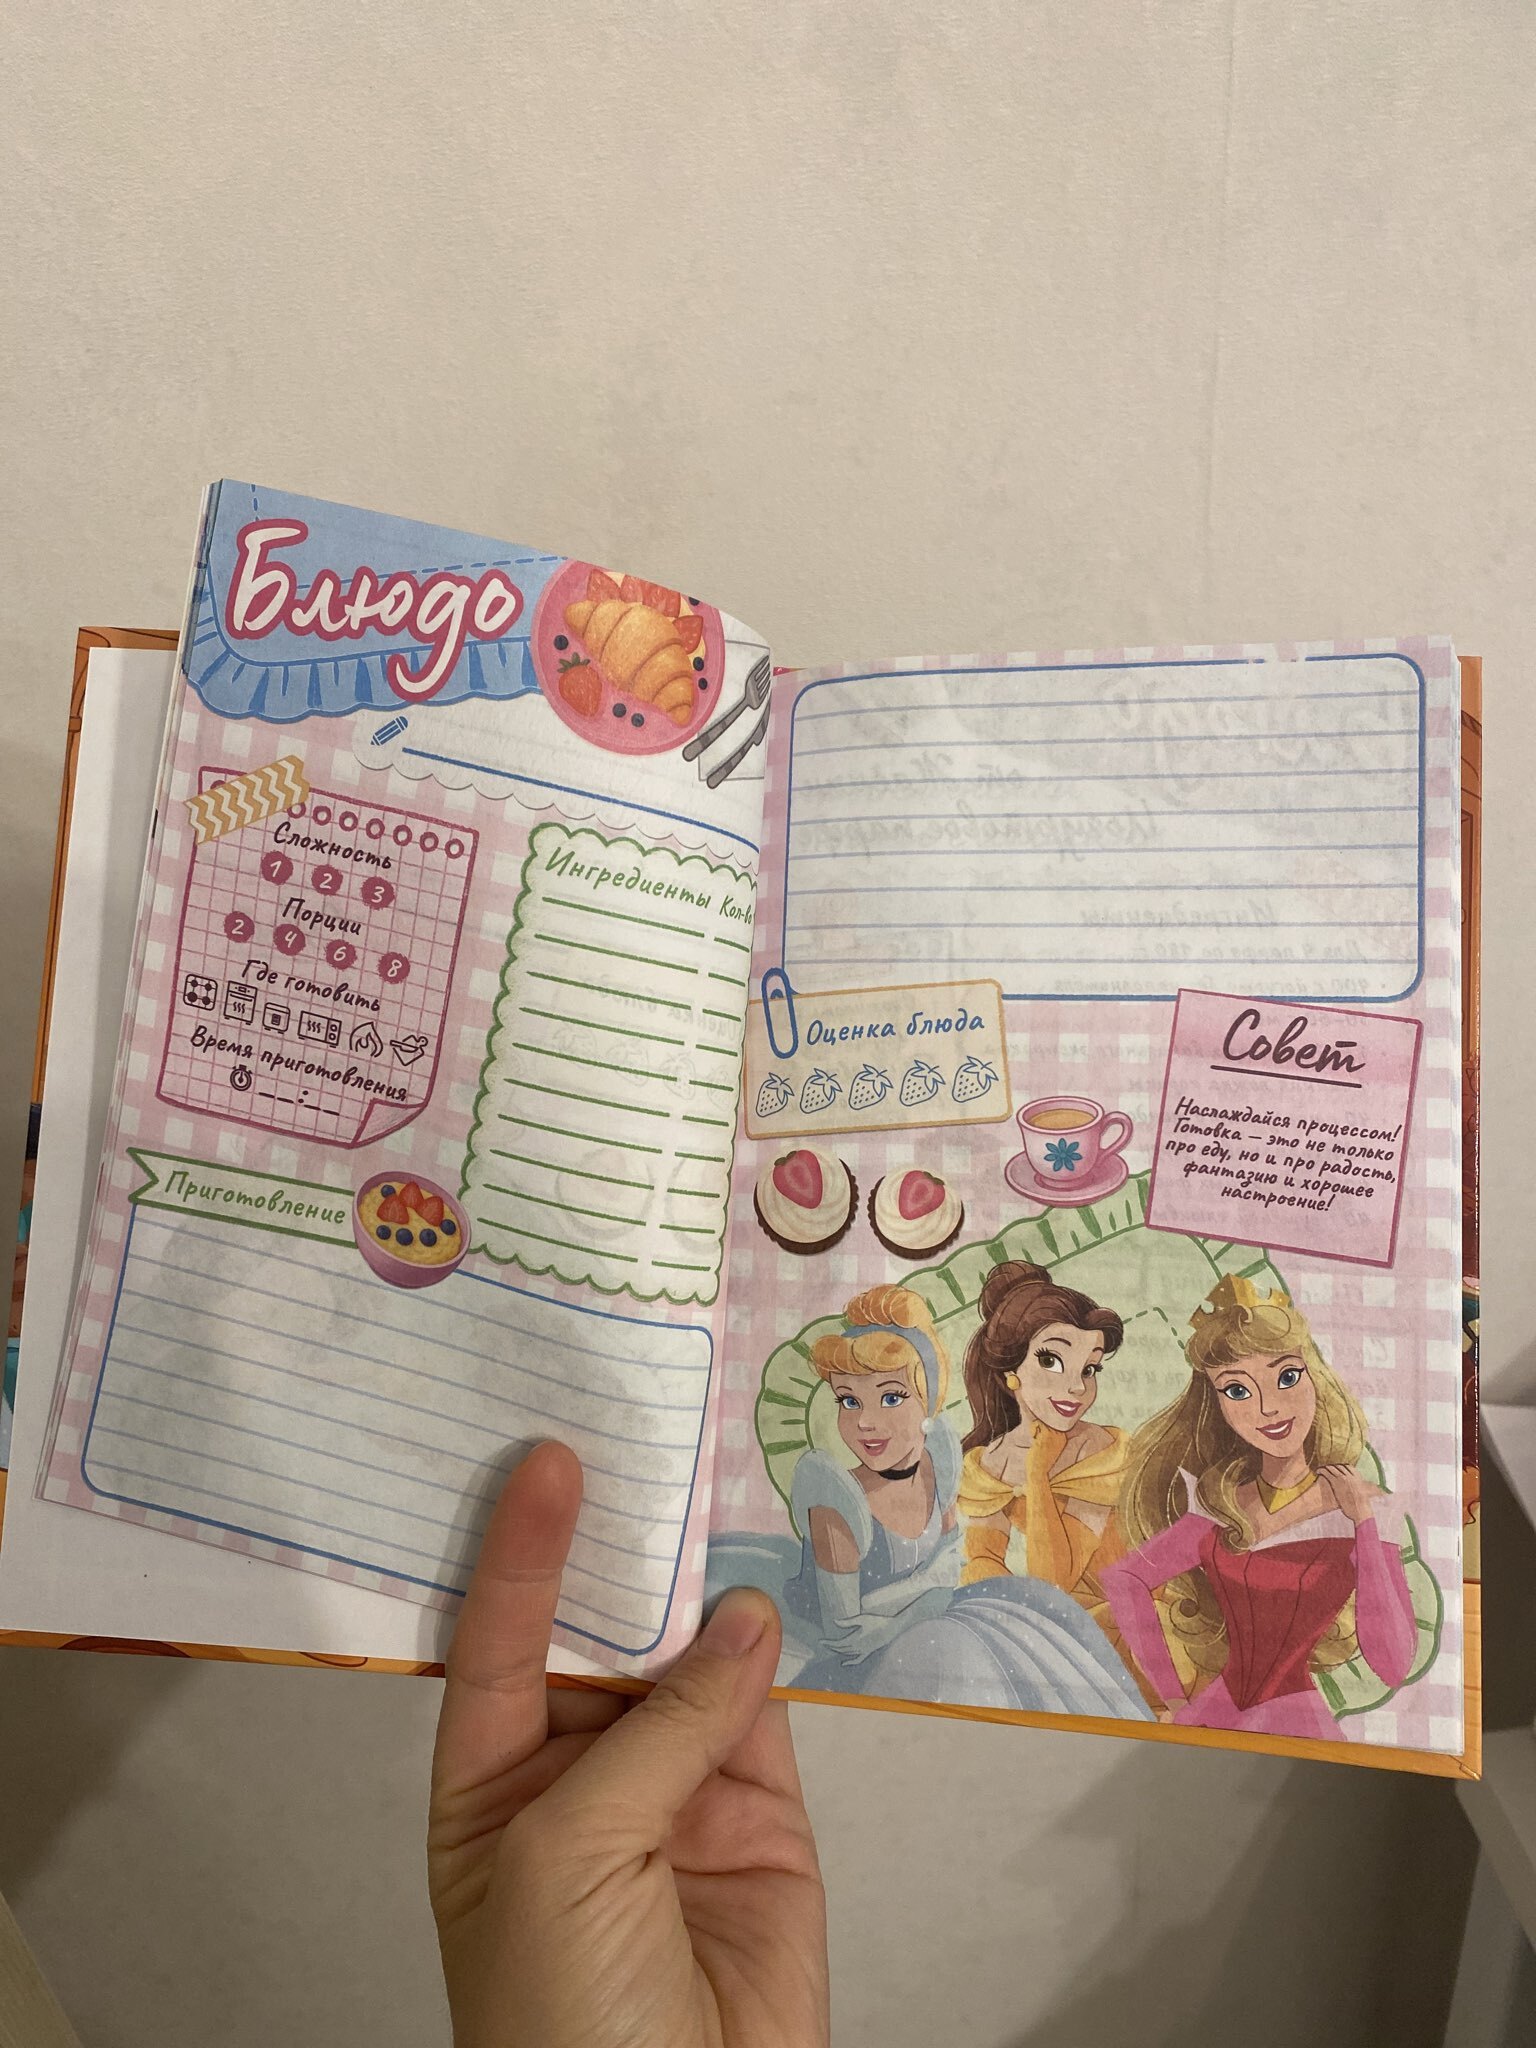 Блюдо
Сложность
1 2 3
Порции
2 4 6 8
Где готовить
Время приготовления
__:__
Ингредиенты Кол-во
Приготовление
Оценка блюда
Совет
Наслаждайся процессом!
Готовка — это не только
про еду, но и про радость,
фантазию и хорошее
настроение!